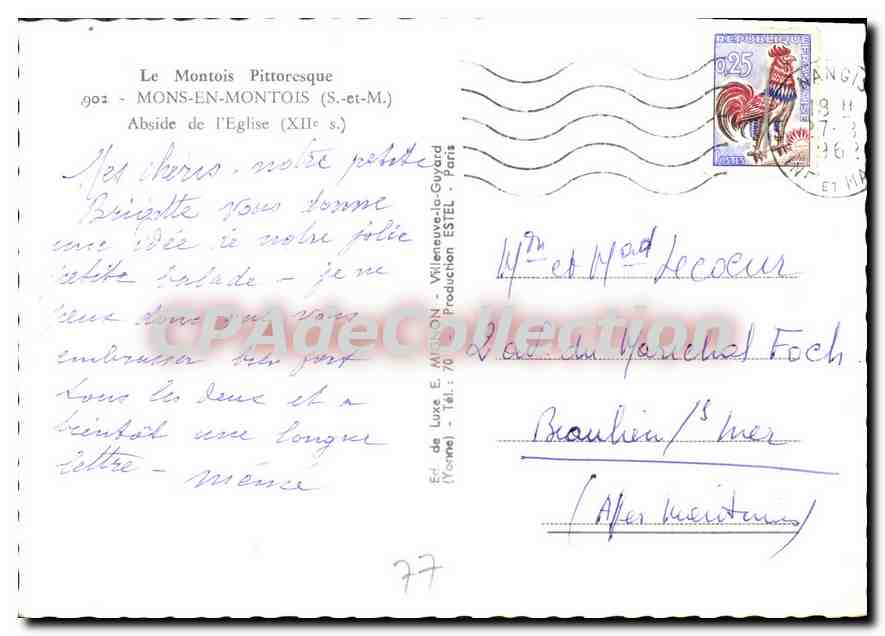 Le Montois Pittoresque
902 - MONS-EN-MONTOIS (S.-et-M.)
Abside de l'Eglise (XIIe s.)
Mes chéris, notre petite
Brigitte vous donne
une idée de notre jolie
petite balade - je ne
peux donc que vous
embrasser bien fort
tous les deux et a
bientôt une longue
lettre -
mémé
Ed. de Luxe E. MIGNON - Villeneuve-la-Guyard
(Yonne) - Tél.: 70 Production ESTEL - Paris
REPUBLIQUE FRANÇAISE
0,25
POSTES
NANGIS
18 H
ET MA
Mon et Mad Lecoeur
2 av. du Maréchal Foch
Beaulieu / s Mer
(Alpes Maritimes)
CPAdeCollection
77